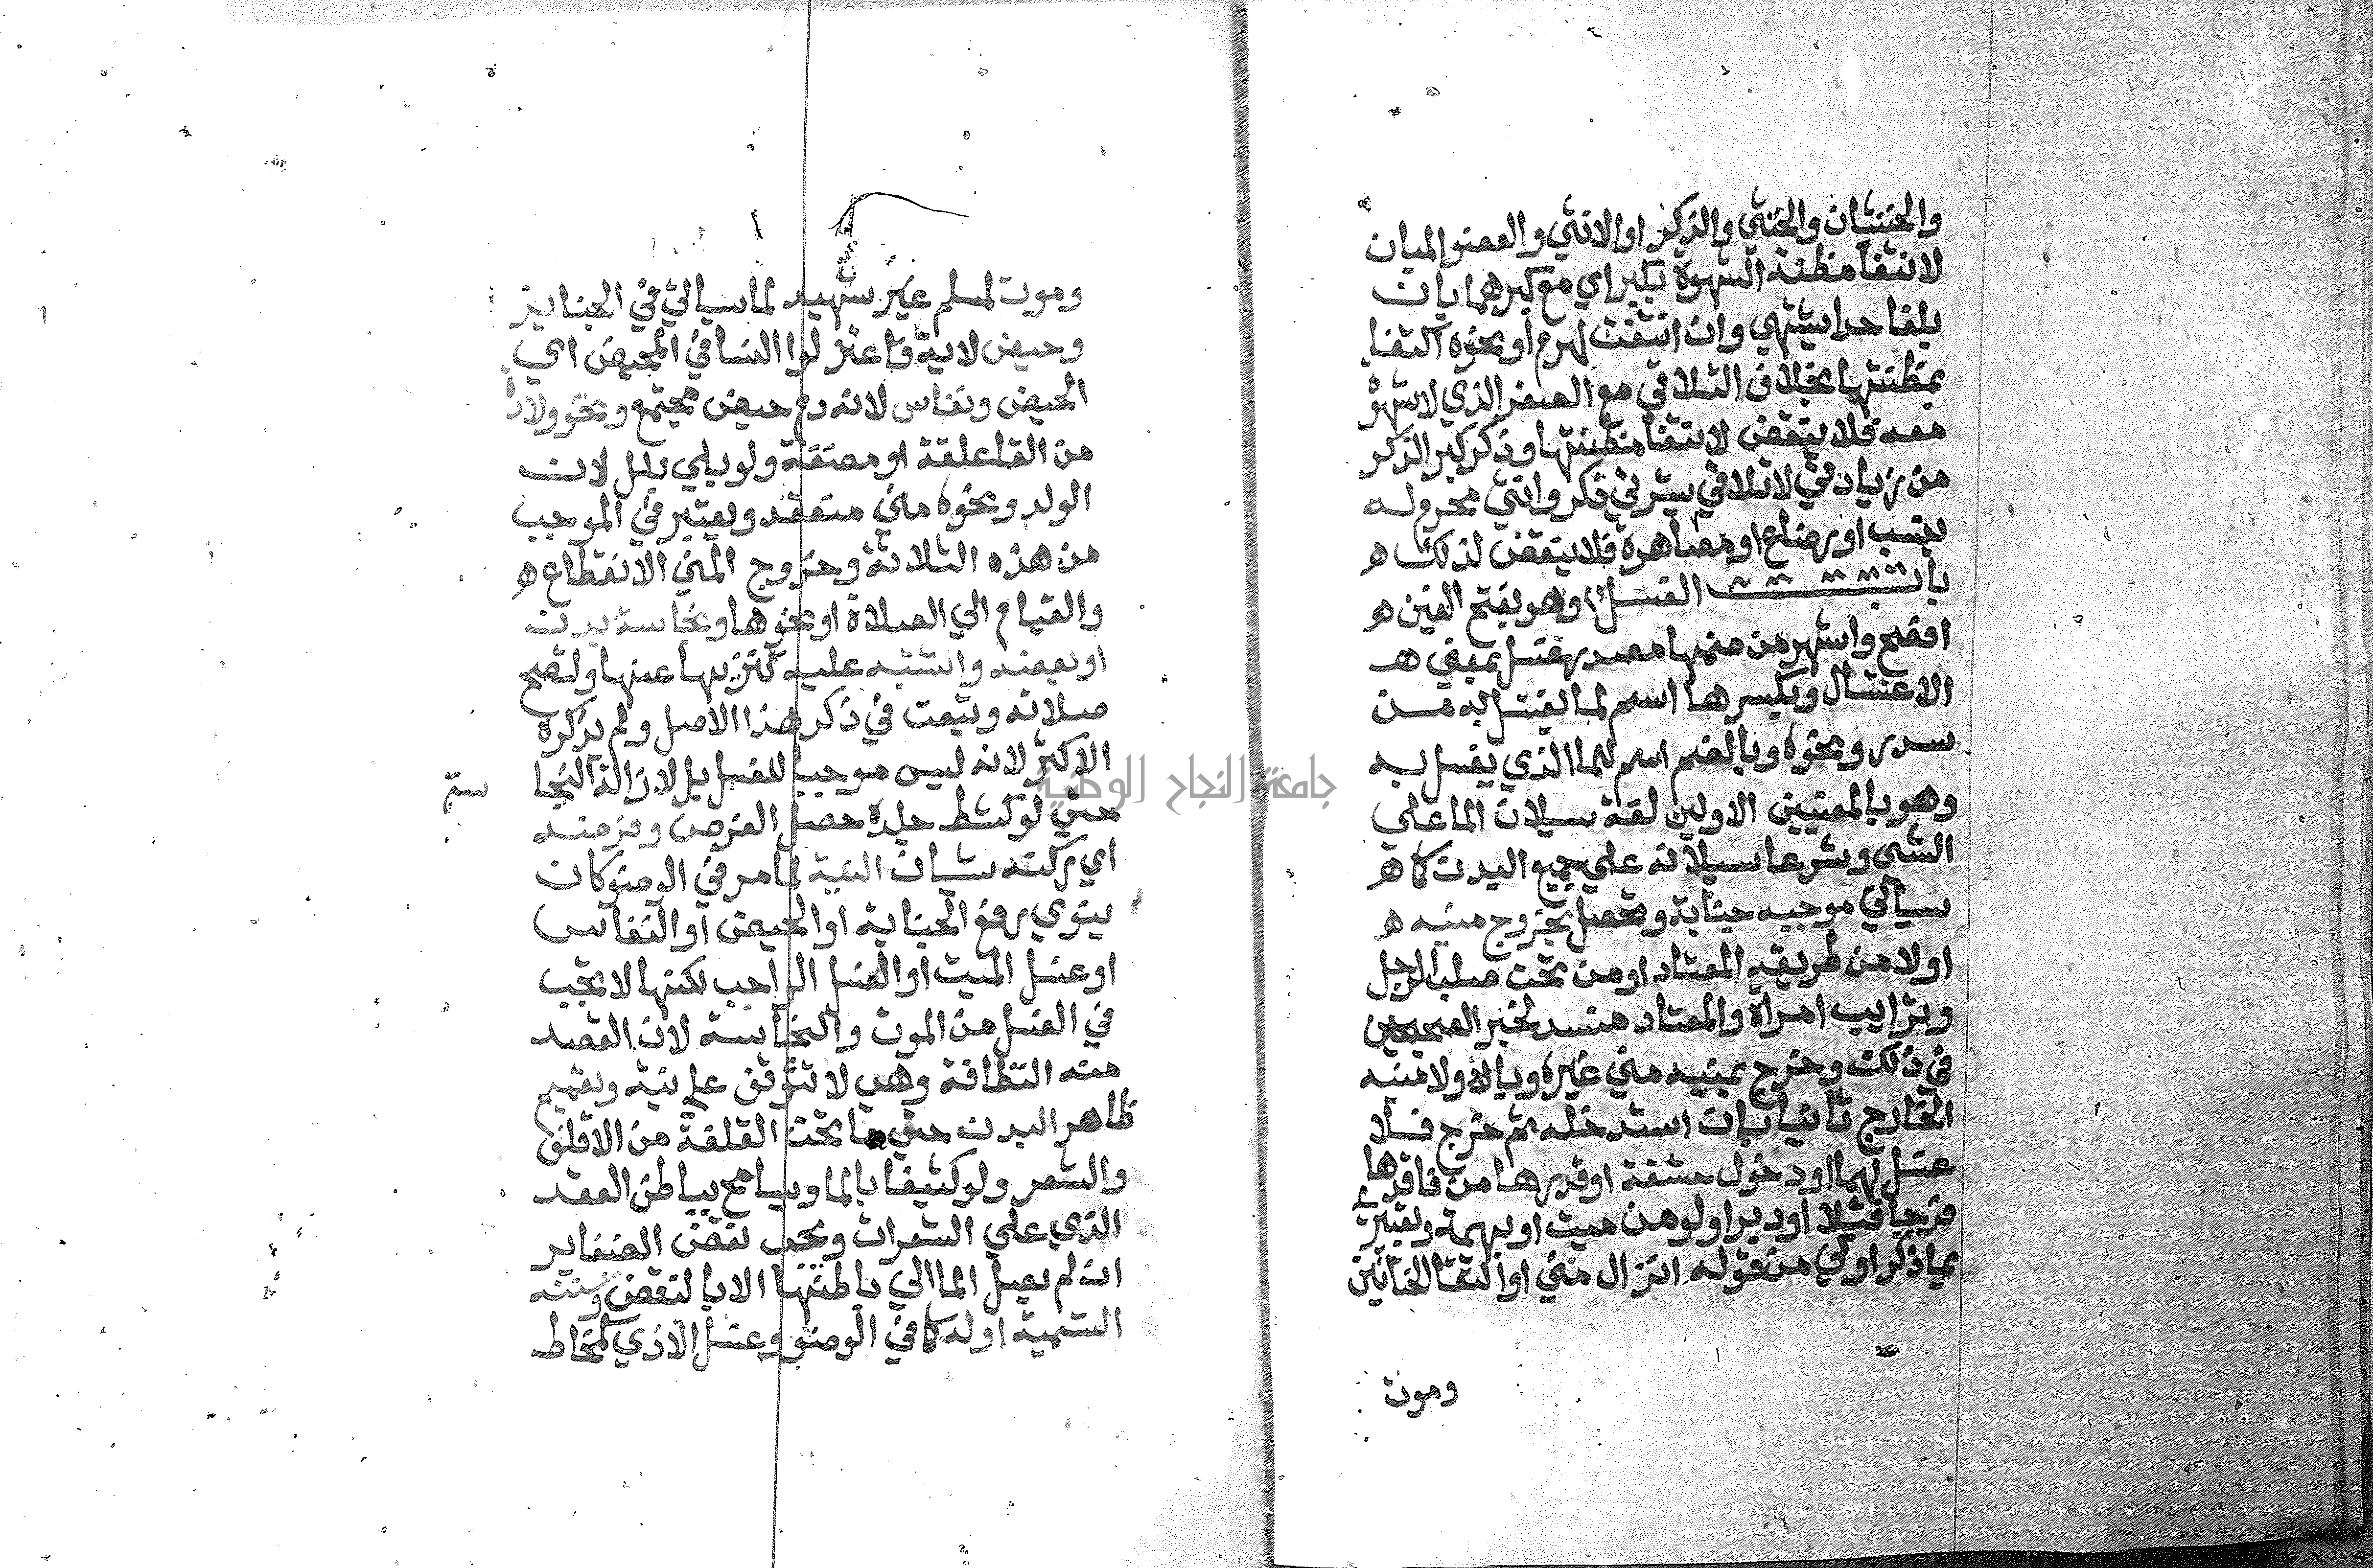 والخنثيان والخنثي والذكر او الانثي والعضو المبان
لانتفا مظنة الشهوة بكبر اي مع كبرهما بان
بلغا حدا يشتهي وان انتفت لهرم او نحوه اكتفا
بمظنتها بخلاف التلاقي مع الصغر الذي لا شهوة
معه فلا ينقض لانتفا مظنتها وذكر كبر الذكر
من زيادتي لا تلاقي بشرتي ذكر وانثي محرم له
بنسب او رضاع او مصاهرة فلا ينقض لذلك ه
باب الغسل وهو بفتح الغين ه
افصح واشهر من ضمها مصدر غسل بمعني ه
الاغتسال وبكسرها اسم لما يغتسل به من
سدر ونحوه وبالضم اسم للما الذي يغسل به
وهو بالمعنيين الاولين لغة سيلان الما علي
الشي وشرعا سيلانه علي جميع البدن كما ه
سياتي موجبه جنابة وتحصل بخروج منيه ه
اولا من طريقه المعتاد او من تحت صلب الرجل
وترايب امراة والمعتاد منسد لخبر الصحيحين
في ذلك وخرج بمنيه مني غيره وبالاولا منيه
الخارج ثانيا بان استدخله ثم خرج فلا
غسل لهما او دخول حشفة او قدرها من فاقدها
فرجا قبلا او دبرا ولو من ميت او بهمة وتعبيري
بما ذكر اولي من قوله انزال مني او التقا الختانين
وموت
وموت لمسلم غير شهيد لما سياتي في الجنايز
وحيض لاية فاعتزلوا النسا في المحيض اي
الحيض ونفاس لانه دم حيض مجتمع ونحو ولادة
من القا علقة او مضغة ولو بلي بلل لان
الولد ونحوه مني منعقد ويعتبر في الموجب
من هذه الثلاثة وخروج المني الانقطاع ه
والقيام الي الصلاة او نحوها ونجاسة بدن
او بعضه واشتبه عليه لتنزيهها عنها ولتصح
صلاته وتبعت في ذكر هذا الاصل ولم يذكره
الاكثر لانه ليس موجبا للغسل بل لازالة النجا
سة
حتي لو كشط جلده حصل الغرض وفرضه
اي ركنه شيان النية لما مر في الوضو كان
ينوي رفع الجنابة او الحيض او النفاس
او غسل الميت او الغسل الواجب لكنها لا تجب
في الغسل من الموت والنجاسة لان القصد
منه النظافة وهي لا تتوقف علي نية وتعميم
ظاهر البدن حتي ما تحت القلفة من الاقلف
والشعر ولو كثيفا بالما ويسامح بباطن العقد
الذي علي الشعرات ويجب نقض الضفاير
ان لم يصل الما الي باطنها الا بالنقض وسننه
التسمية اوله كما في الوضو وغسل الاذي كمخاط
جامعة النجاح الوطنية